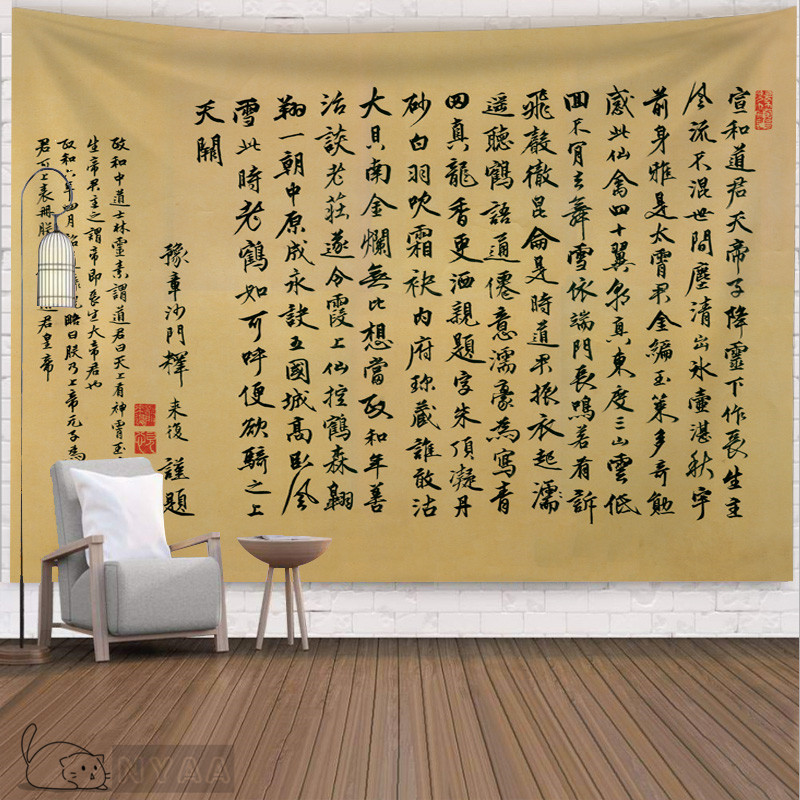 宣和道君天帝子降靈下作長生主
風流不混世間塵清出冰壺湛秋宇
前身雅是太霄君金編玉策多奇勛
感此仙禽四十翼朝真東度三山雲低
回不肯去舞雪依端門長鳴若有訴
飛聲徹崑侖是時道君振衣起濡
遥聽鶴語通僊意濡豪為寫青
田真龍香更洒親題字朱頂凝丹
砂白羽吹霜袂内府珎藏誰敢沽
大貝南金爛無比想當政和年善
活談老莊遂令霞上仙控鶴森翱
翔一朝中原成永訣五國城高臥風
雪此時老鶴如可呼便欲騎之上
天闕
豫章沙門釋 来復 謹題
政和中道士林靈素謂道君曰天上有神霄玉
生帝君主之謂帝即長生大帝君也
政和六年四月 詔 略曰朕乃上帝元子為
君可上表冊朕 君皇帝
NYAA